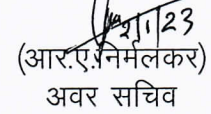 2/1/23
(आर.ए.निर्मलकर)
अवर सचिव